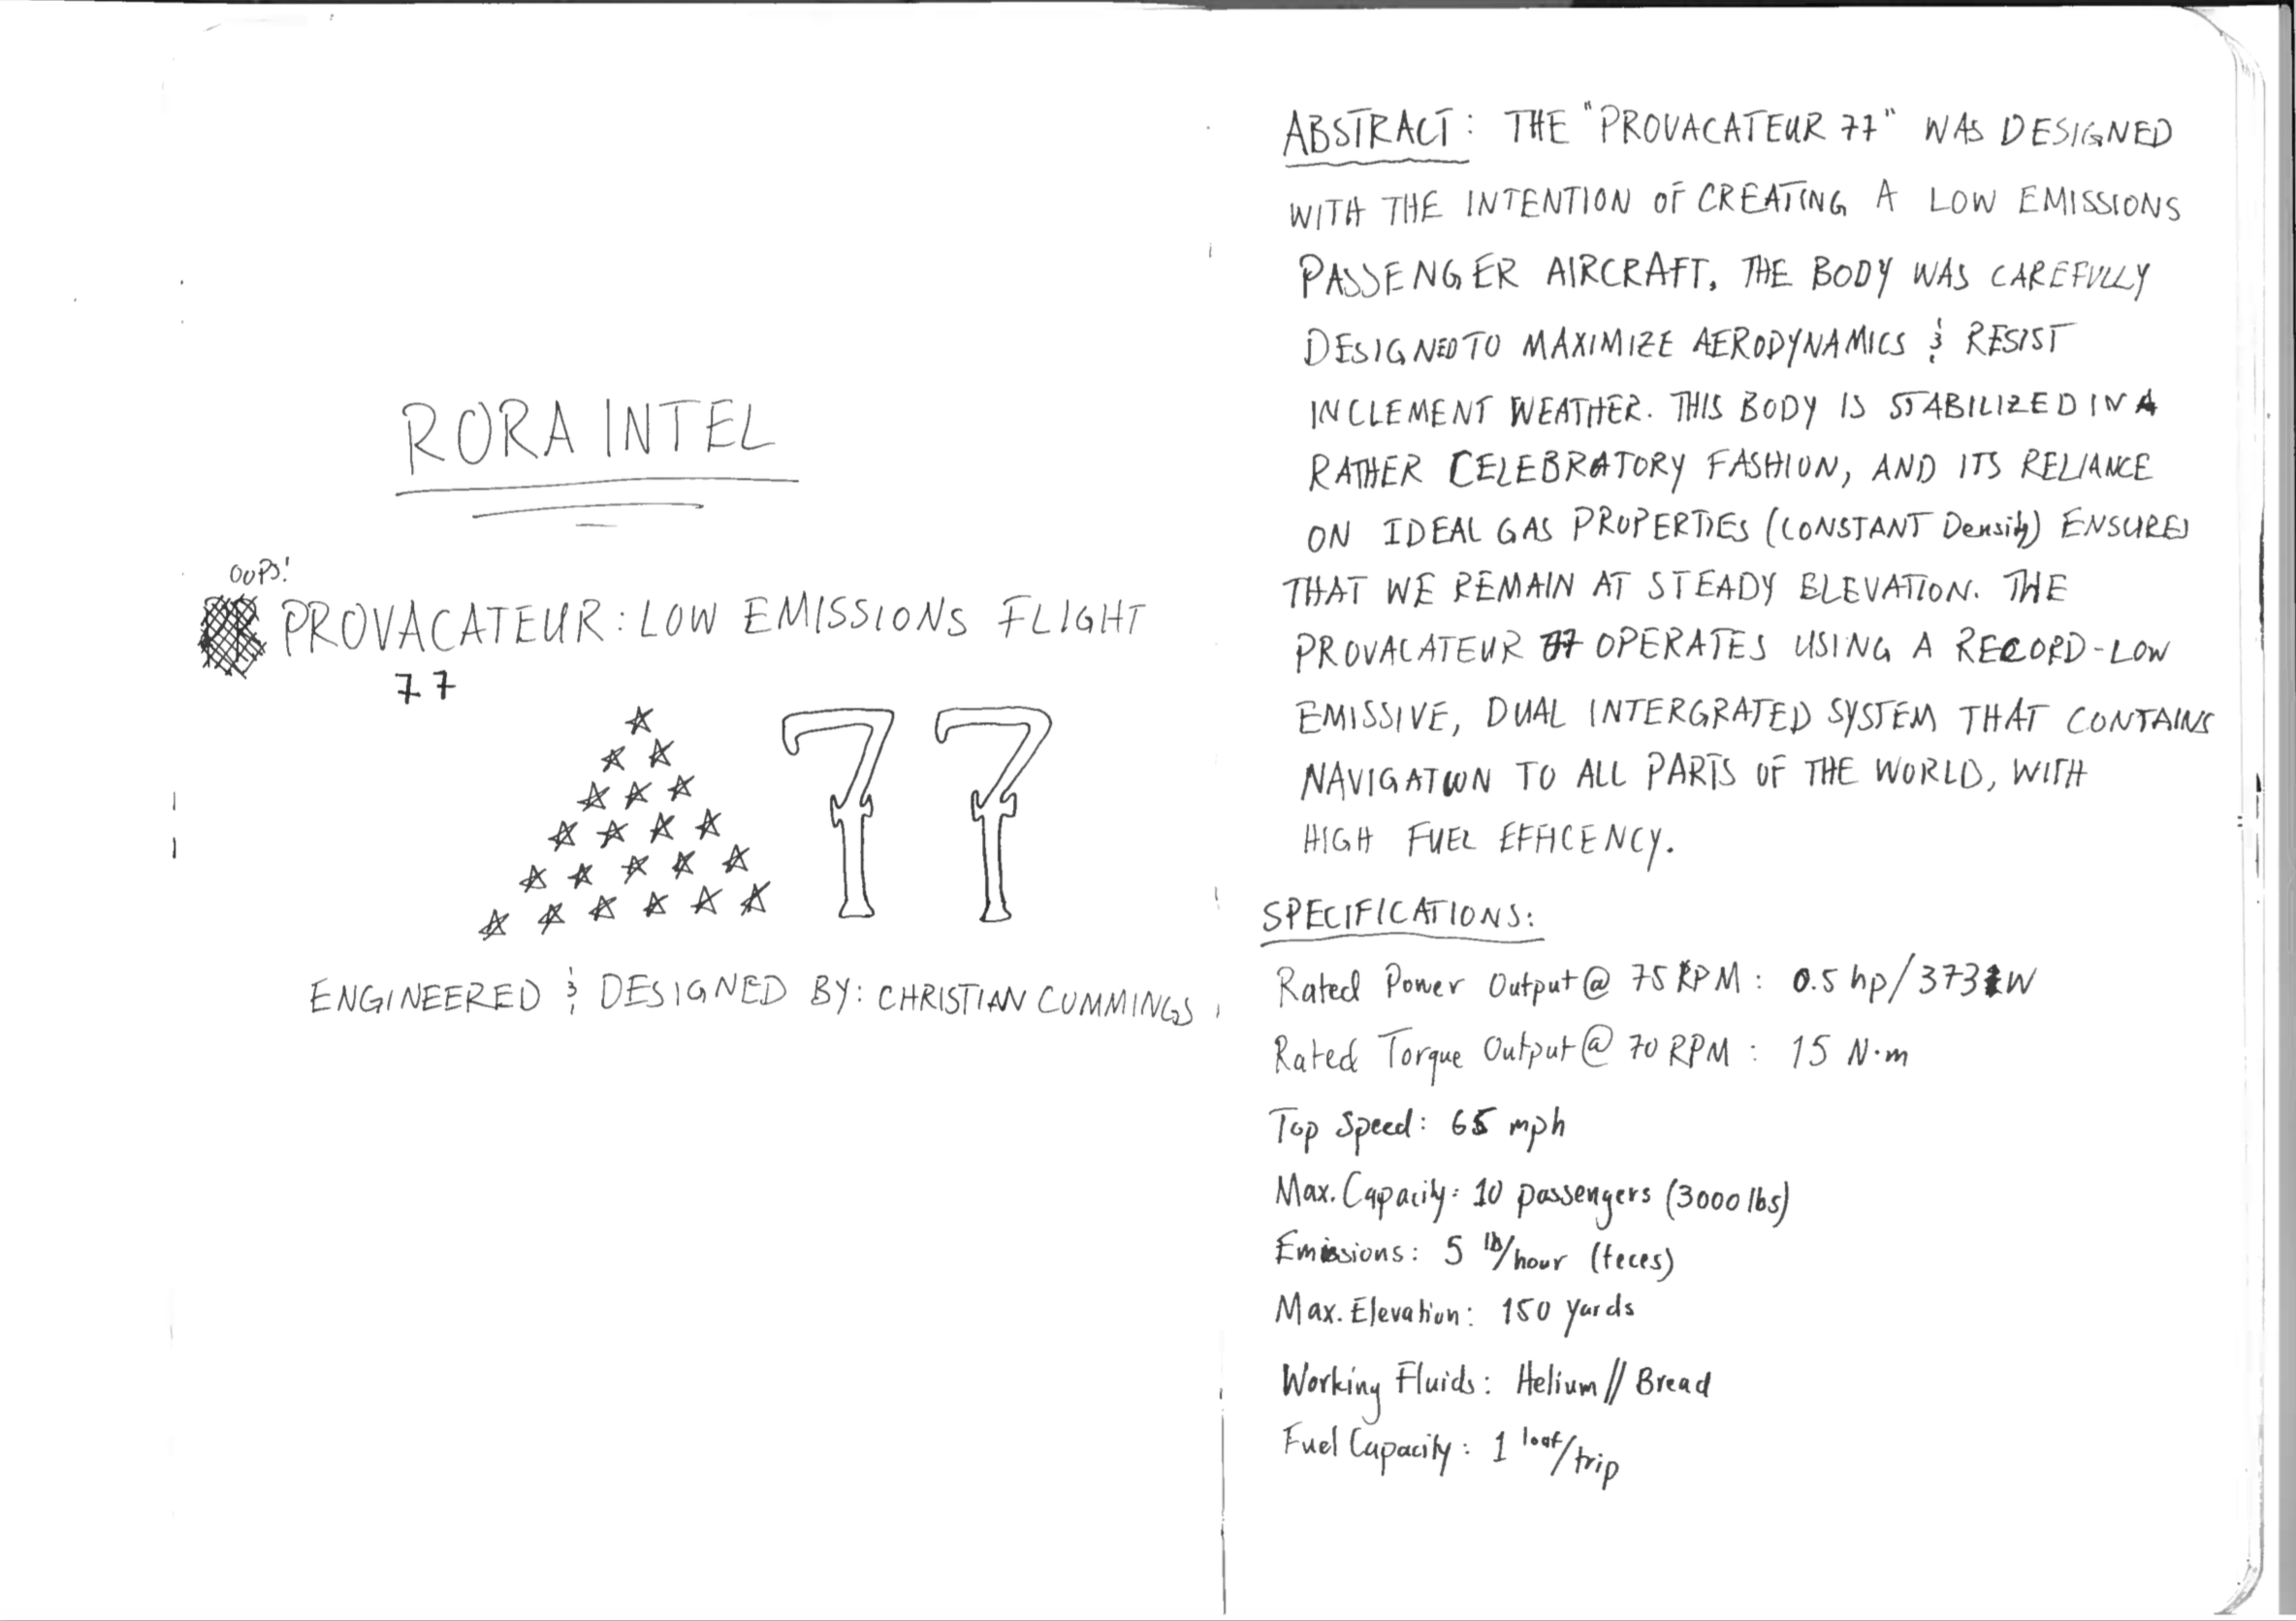 RORA INTEL
OUPS!
PROVACATEUR: LOW EMISSIONS FLIGHT
77
77
ENGINEERED & DESIGNED BY: CHRISTIAN CUMMINGS
ABSTRACT: THE "PROVACATEUR 77" WAS DESIGNED
WITH THE INTENTION OF CREATING A LOW EMISSIONS
PASSENGER AIRCRAFT. THE BODY WAS CAREFULLY
DESIGNED TO MAXIMIZE AERODYNAMICS & RESIST
INCLEMENT WEATHER. THIS BODY IS STABILIZED IN A
RATHER CELEBRATORY FASHION, AND ITS RELIANCE
ON IDEAL GAS PROPERTIES (CONSTANT Density) ENSURES
THAT WE REMAIN AT STEADY ELEVATION. THE
PROVACATEUR 77 OPERATES USING A RECORD-LOW
EMISSIVE, DUAL INTERGRATED SYSTEM THAT CONTAINS
NAVIGATION TO ALL PARTS OF THE WORLD, WITH
HIGH FUEL EFFICENCY.
SPECIFICATIONS:
Rated Power Output @ 75 RPM: 0.5 hp/373 W
Rated Torque Output @ 70 RPM: 15 N·m
Top Speed: 65 mph
Max. Capacity: 10 passengers (3000 lbs)
Emissions: 5 lb/hour (feces)
Max. Elevation: 150 yards
Working Fluids: Helium // Bread
Fuel Capacity: 1 loaf/trip